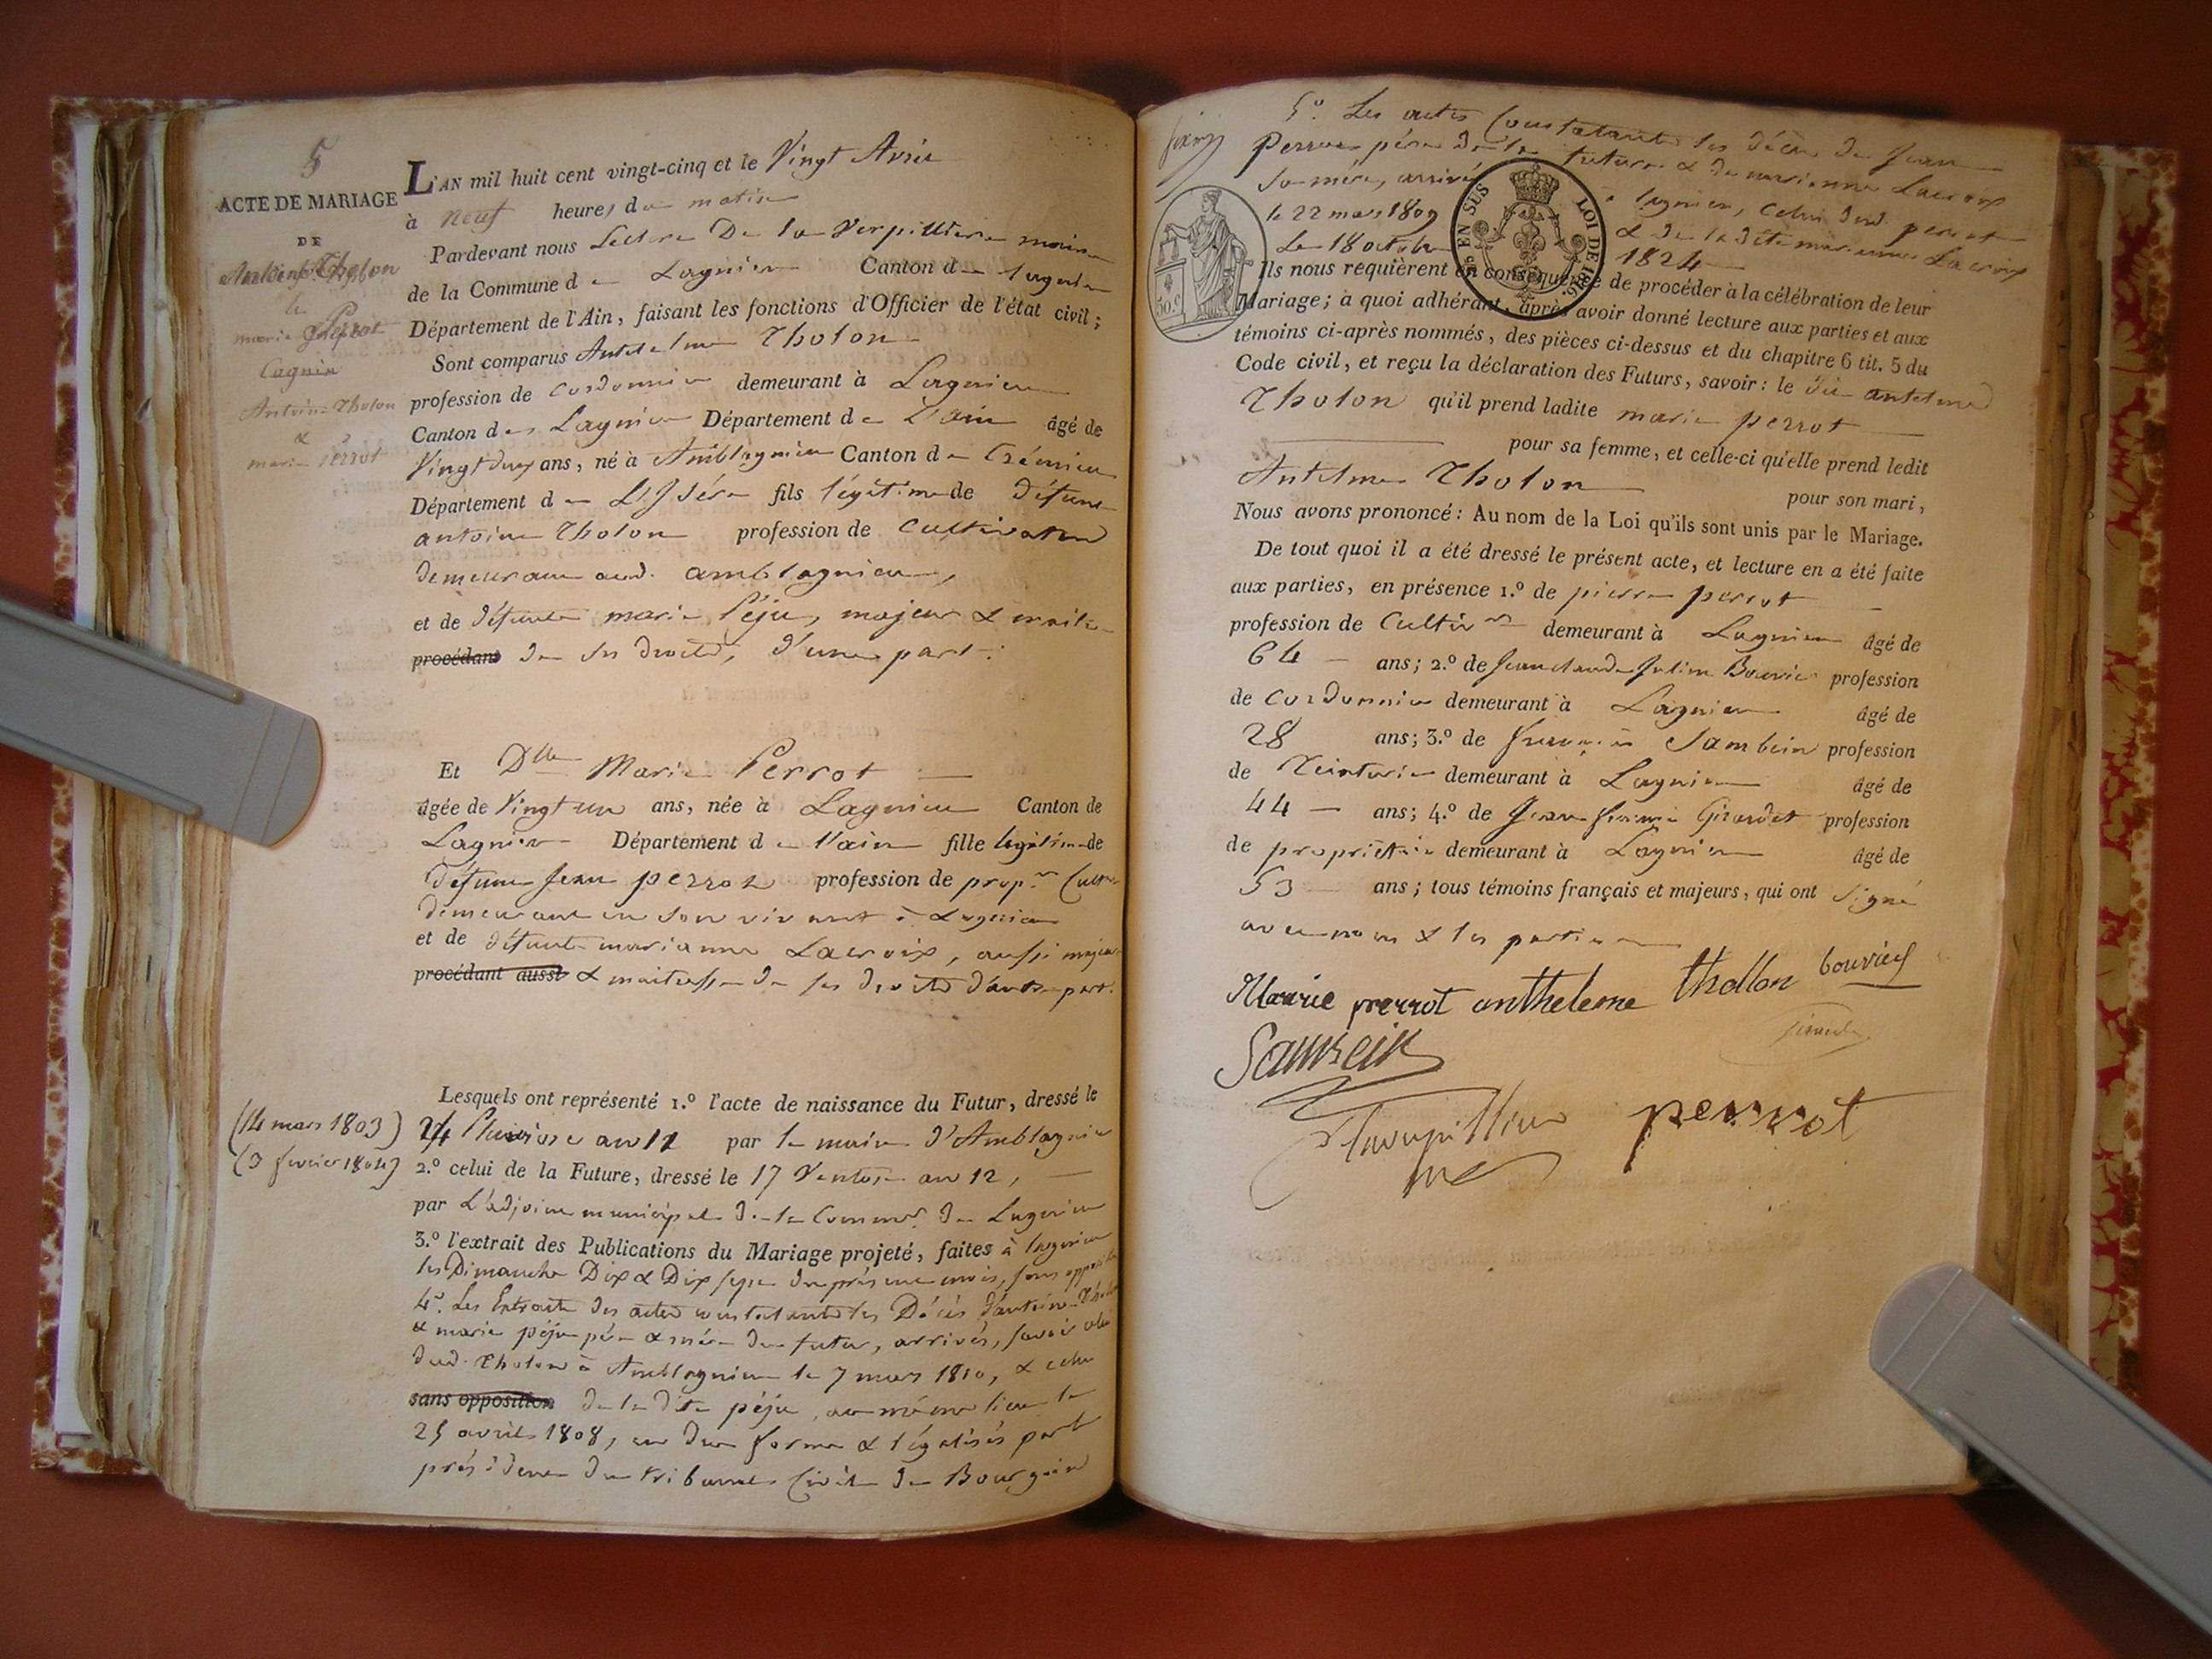 5
ACTE DE MARIAGE
DE
Tholon
&
marie Perrot
Lagnieu
Antoine Tholon
&
marie Perrot
L'AN mil huit cent vingt-cinq et le Vingt Avril
à neuf heures du matin
Pardevant nous Leclerc De la Verpilliere maire
de la Commune de Lagnieu Canton de Lagnieu
Département de l'Ain, faisant les fonctions d'Officier de l'état civil;
Sont comparus Antelme Tholon
profession de cordonnier demeurant à Lagnieu
Canton de Lagnieu Département de L'ain âgé de
Vingt deux ans, né à Amblagnieu Canton de Crémieu
Département de L'Isére fils légitime de défunt
antoine Tholon profession de Cultivateur
demeurant aud. amblagnieu,
et de défunte marie Péju, majeur & maitre
procédant de ses droits, d'une part.
Et Dlle Marie Perrot
âgée de Vingt un ans, née à Lagnieu Canton de
Lagnieu Département de l'ain fille légitime de
défunt Jean perrot profession de prop.re Cultr
demeurant en son vivant à Lagnieu
et de défunte marianne Lacroix, aussi majeure
procédant aussi & maitresse de ses droits d'autre part.
Lesquels ont représenté 1.º l'acte de naissance du Futur, dressé le
(14 mars 1803) 24 Pluviose an 11 par le maire d'Amblagnieu
(3 fevrier 1804) 2.º celui de la Future, dressé le 17 Ventose an 12,
par L'adjoint municipal de la Commne de Lagnieu
3.º l'extrait des Publications du Mariage projeté, faites à lagnieu
les Dimanche Dix & Dix sept du présent mois, sans opposition
4º. Les Extraits des actes constatants les Décès d'antoine Tholon
& marie péju pére & mére du futur, arrivés, savoir celui
dud. Tholon à Amblagnieu le 7 mars 1810, & celui
sans opposition de la dite péju, au méme lieu le
25 avril 1808, en due forme & légalisés par le
président du tribunal Civil de Bourgoin
5º. Les actes Constatants les décès de Jean
Perrot pére de la future & de marianne Lacroix
sa mére, arrivés à lagnieu, celui dud. perrot
le 22 mars 1809 & de la dite marianne Lacroix
Le 18 octobre 1824
EN SUS LOI DE 1816
50 c
Ils nous requièrent en conséquence de procéder à la célébration de leur
Mariage; à quoi adhérant, après avoir donné lecture aux parties et aux
témoins ci-après nommés, des pièces ci-dessus et du chapitre 6 tit. 5 du
Code civil, et reçu la déclaration des Futurs, savoir: le dit antelme
Tholon qu'il prend ladite marie perrot
pour sa femme, et celle-ci qu'elle prend ledit
Antelme Tholon pour son mari,
Nous avons prononcé: Au nom de la Loi qu'ils sont unis par le Mariage.
De tout quoi il a été dressé le présent acte, et lecture en a été faite
aux parties, en présence 1.º de pierre perrot
profession de Cultivr demeurant à Lagnieu âgé de
64 ans; 2.º de Jean claude Julien Bouvier profession
de Cordonnier demeurant à Lagnieu âgé de
28 ans; 3.º de françois Sambein profession
de Teinturier demeurant à Lagnieu âgé de
44 ans; 4.º de Jean Girardet profession
de propriétaire demeurant à Lagnieu âgé de
53 ans; tous témoins français et majeurs, qui ont signé
avec nous & les parties
Marie perrot antheleme thollon bouvier
Sambein
perrot